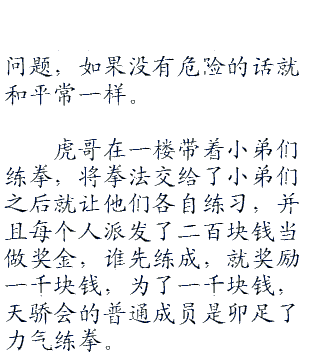 问题，如果没有危险的话就
和平常一样。
虎哥在一楼带着小弟们
练拳，将拳法交给了小弟们
之后就让他们各自练习，并
且每个人派发了二百块钱当
做奖金，谁先练成，就奖励
一千块钱，为了一千块钱，
天骄会的普通成员是卯足了
力气练拳。